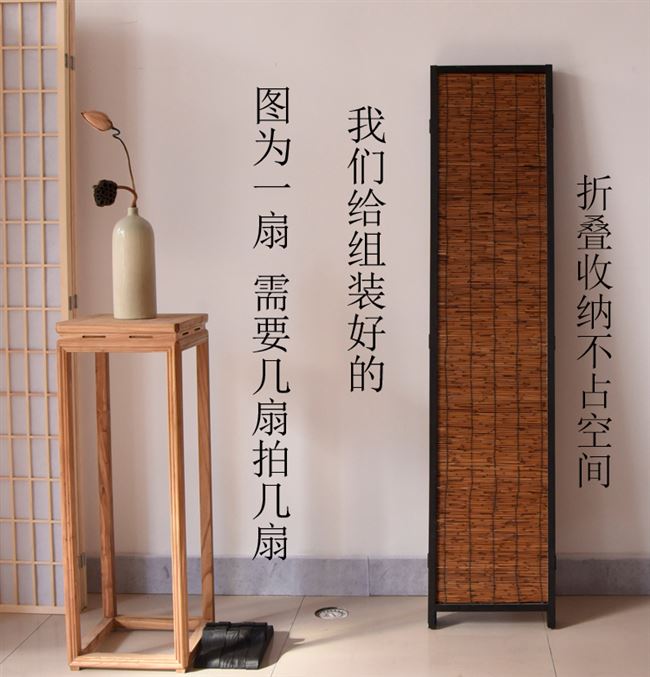 图为一扇 需要几扇拍几扇
我们给组装好的
折叠收纳不占空间